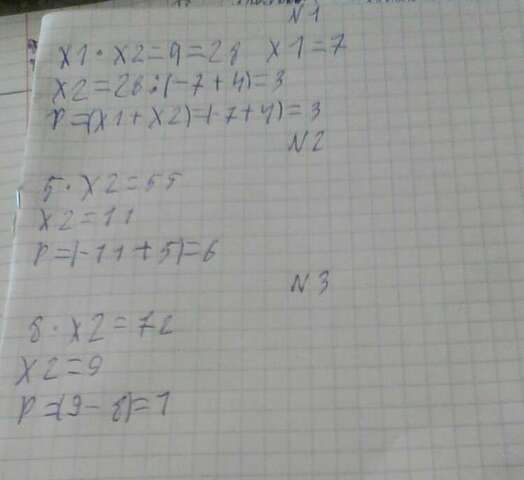 N1
x1 · x2 = 9 = 28 x1 = 7
x2 = 28 : (-7 + 4) = 3
p = (x1 + x2) = (-7 + 4) = 3
N2
5 · x2 = 55
x2 = 11
p = (-11 + 5) = 6
N3
8 · x2 = 72
x2 = 9
p = (9 - 8) = 1